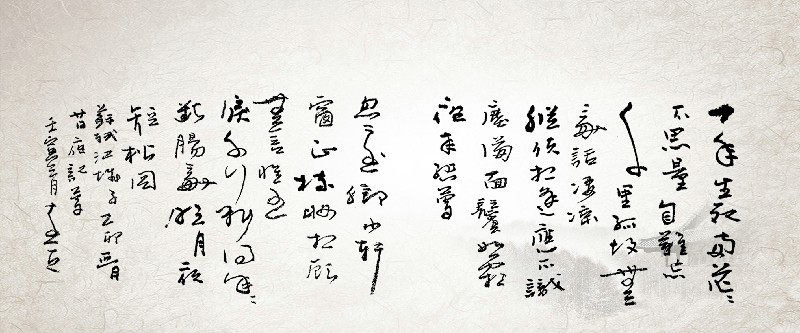 十年生死兩茫〻
不思量自難忘
千里孤坟無
處話凄凉
縱使相逢應不識
塵滿面鬢如霜
夜來幽夢
忽還鄉小軒
窗正梳妝相顧
無言惟有
淚千行料得年〻
斷腸處明月夜
短松岡
蘇軾江城子乙卯正月
夜記夢
壬寅月